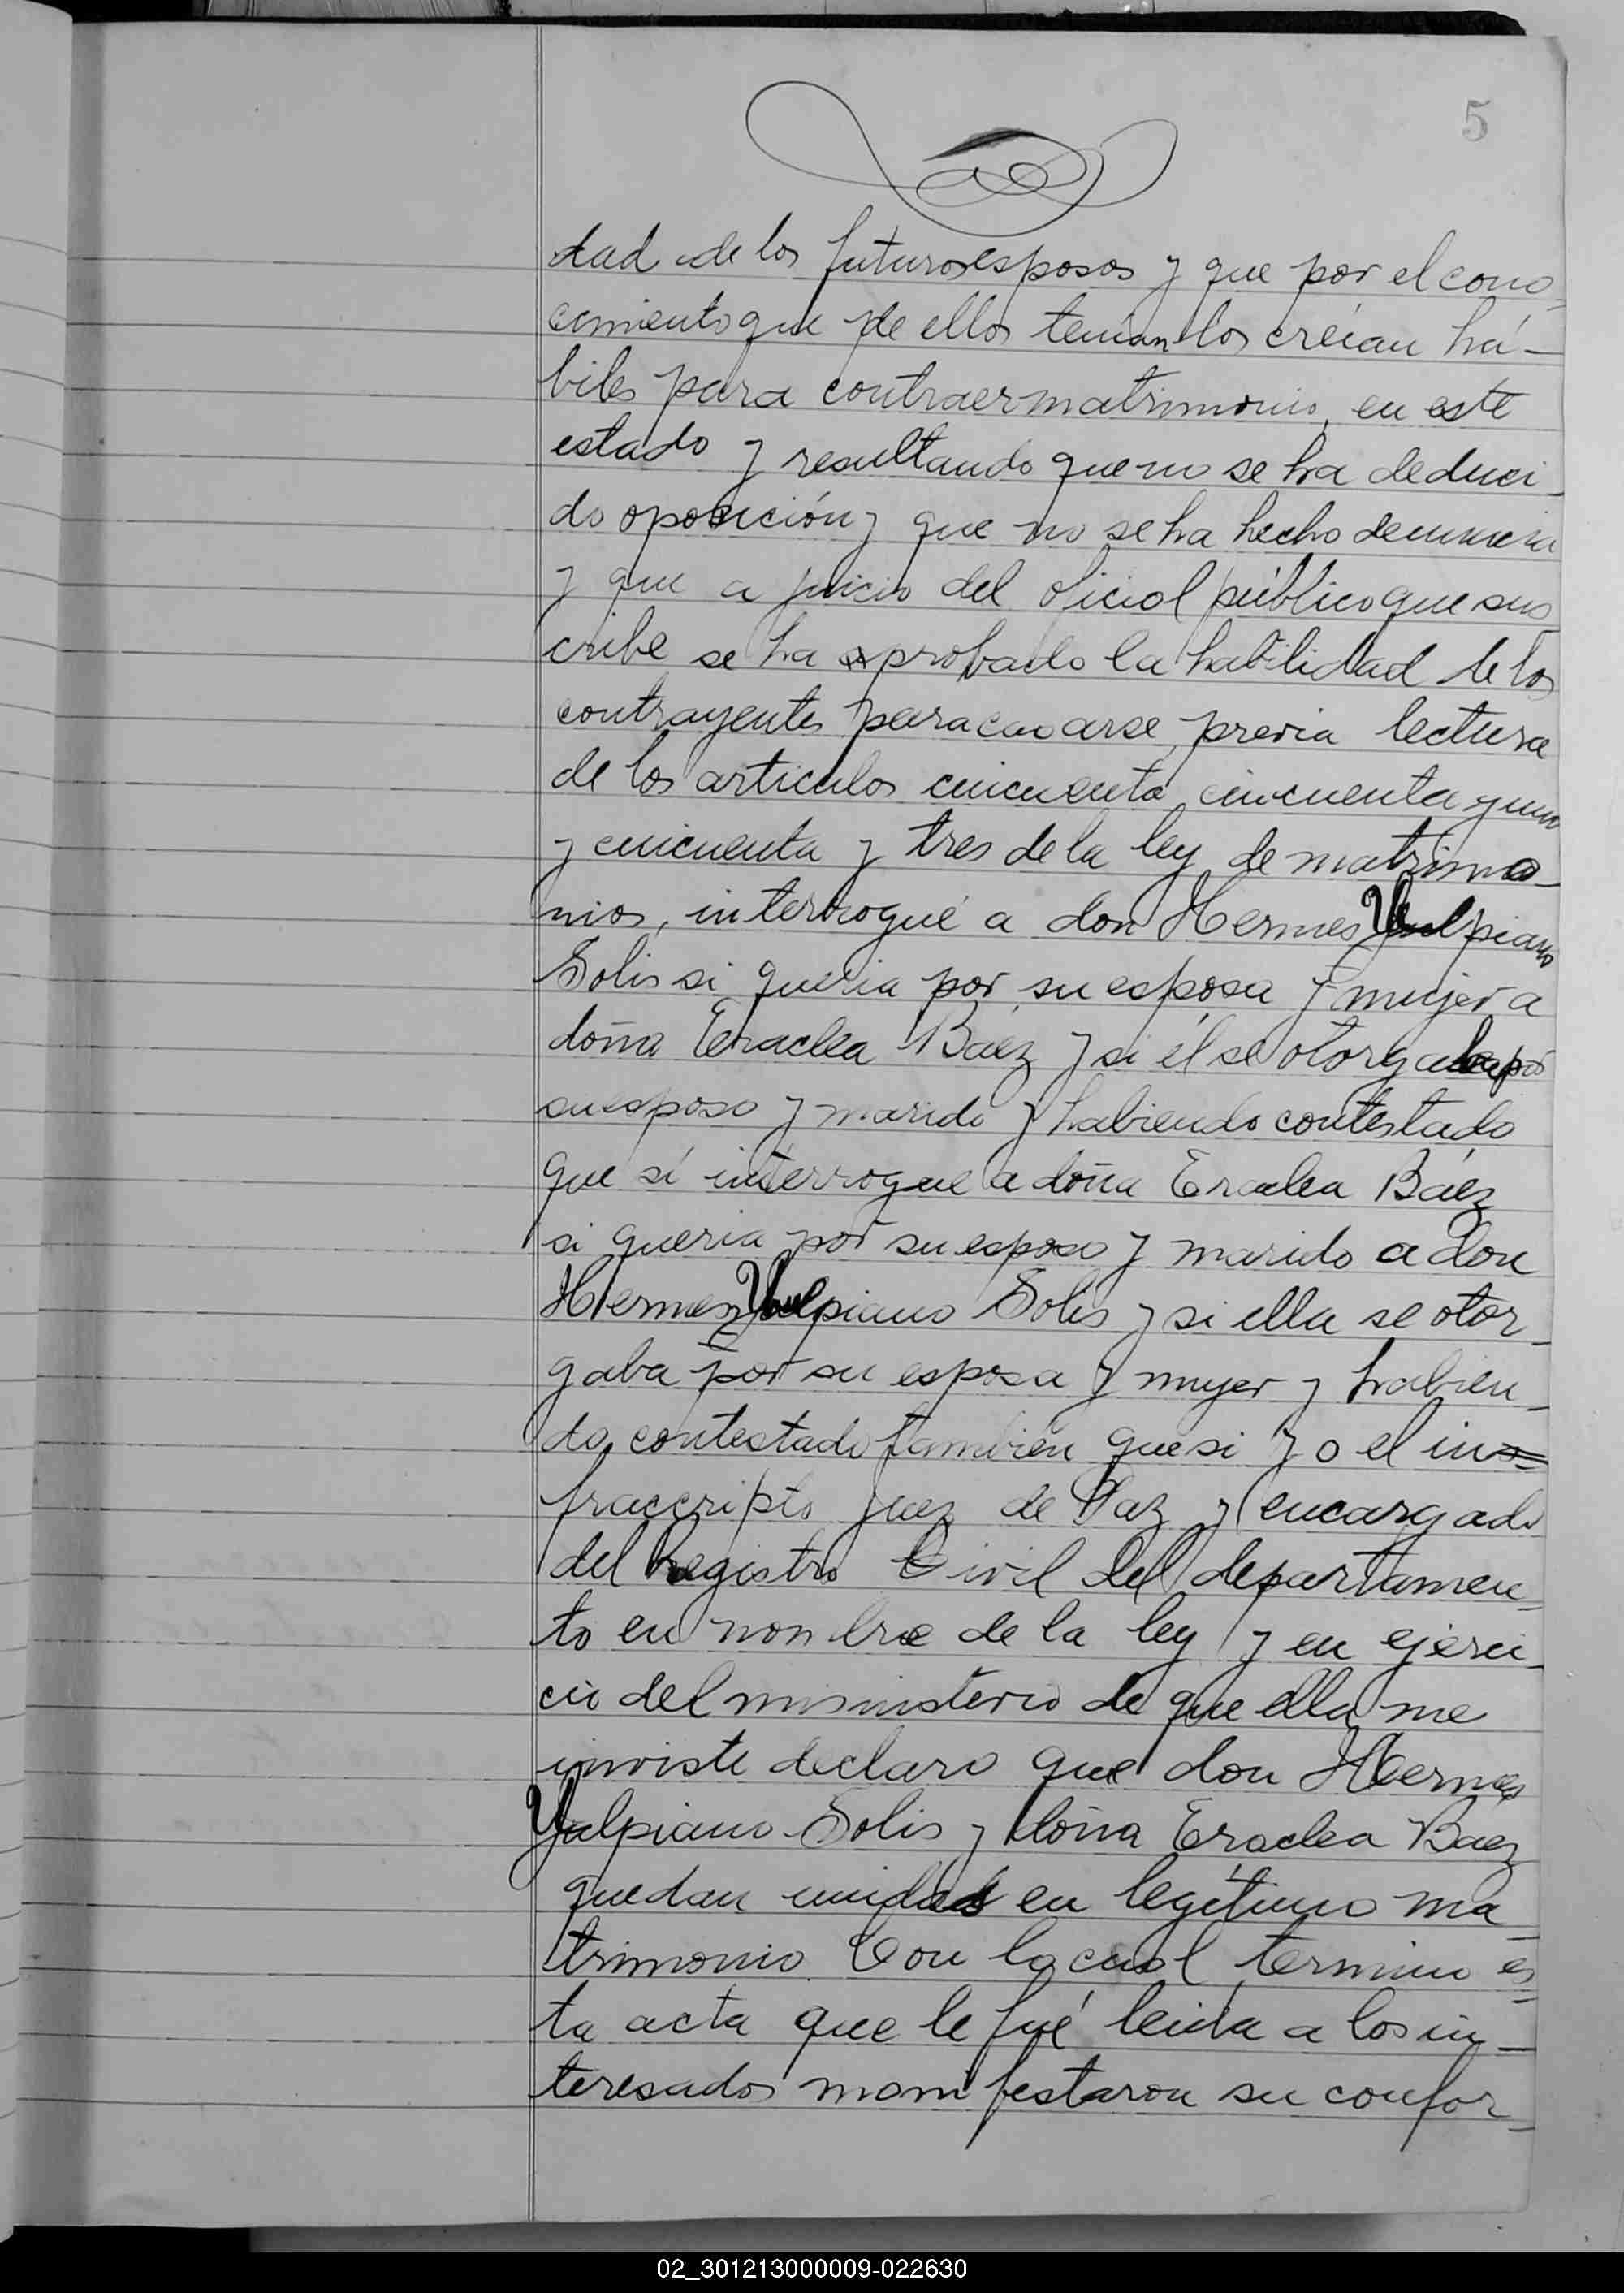 5
dad de los futuros esposos y que por el cono
cimiento que de ellos tenian los creían há-
biles para contraer matrimonio, en este
estado y resultando que no se ha deduci-
do oposición y que no se ha hecho denuncia
y que a juicio del oficial público que sus
cribe se ha aprobado la habilidad de los
contrayentes para casarse, previa lectura
de los articulos cincuenta, cincuenta y uno
y cincuenta y tres de la ley de matrimo-
nios, interrogué a don Hermes Ulpiano
Solis si queria por su esposa y mujer a
doña Eraclea Báez y si él se otorgaba por
su esposo y marido y habiendo contestado
que sí interrogue a doña Eraclea Báez
si queria por su esposo y marido a don
Hermes Ulpiano Solis y si ella se otor-
gaba por su esposa y mujer y habien-
do contestado también que si yo el in=
fraccripto juez de Paz y encargado
del Registro Civil del departamen-
to en nombre de la ley y en ejerci-
cio del misnisterio de que ella me
inviste declaro que don Hermes
Ulpiano Solis y doña Eraclea Báez
quedan unidos en legítimo ma-
trimonio. Con lo cual termino es-
ta acta que le fué leida a los in-
teresados manifestaron su confor-
02_301213000009-022630